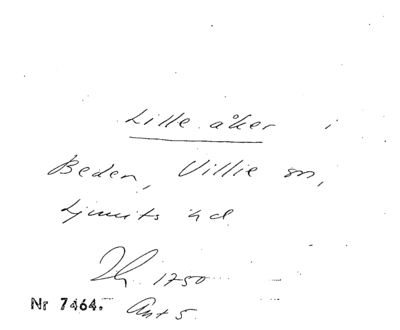 Lille åker i
Beden, Villie sn,
Ljunits hd
1750
Nr 7464. Ant 5